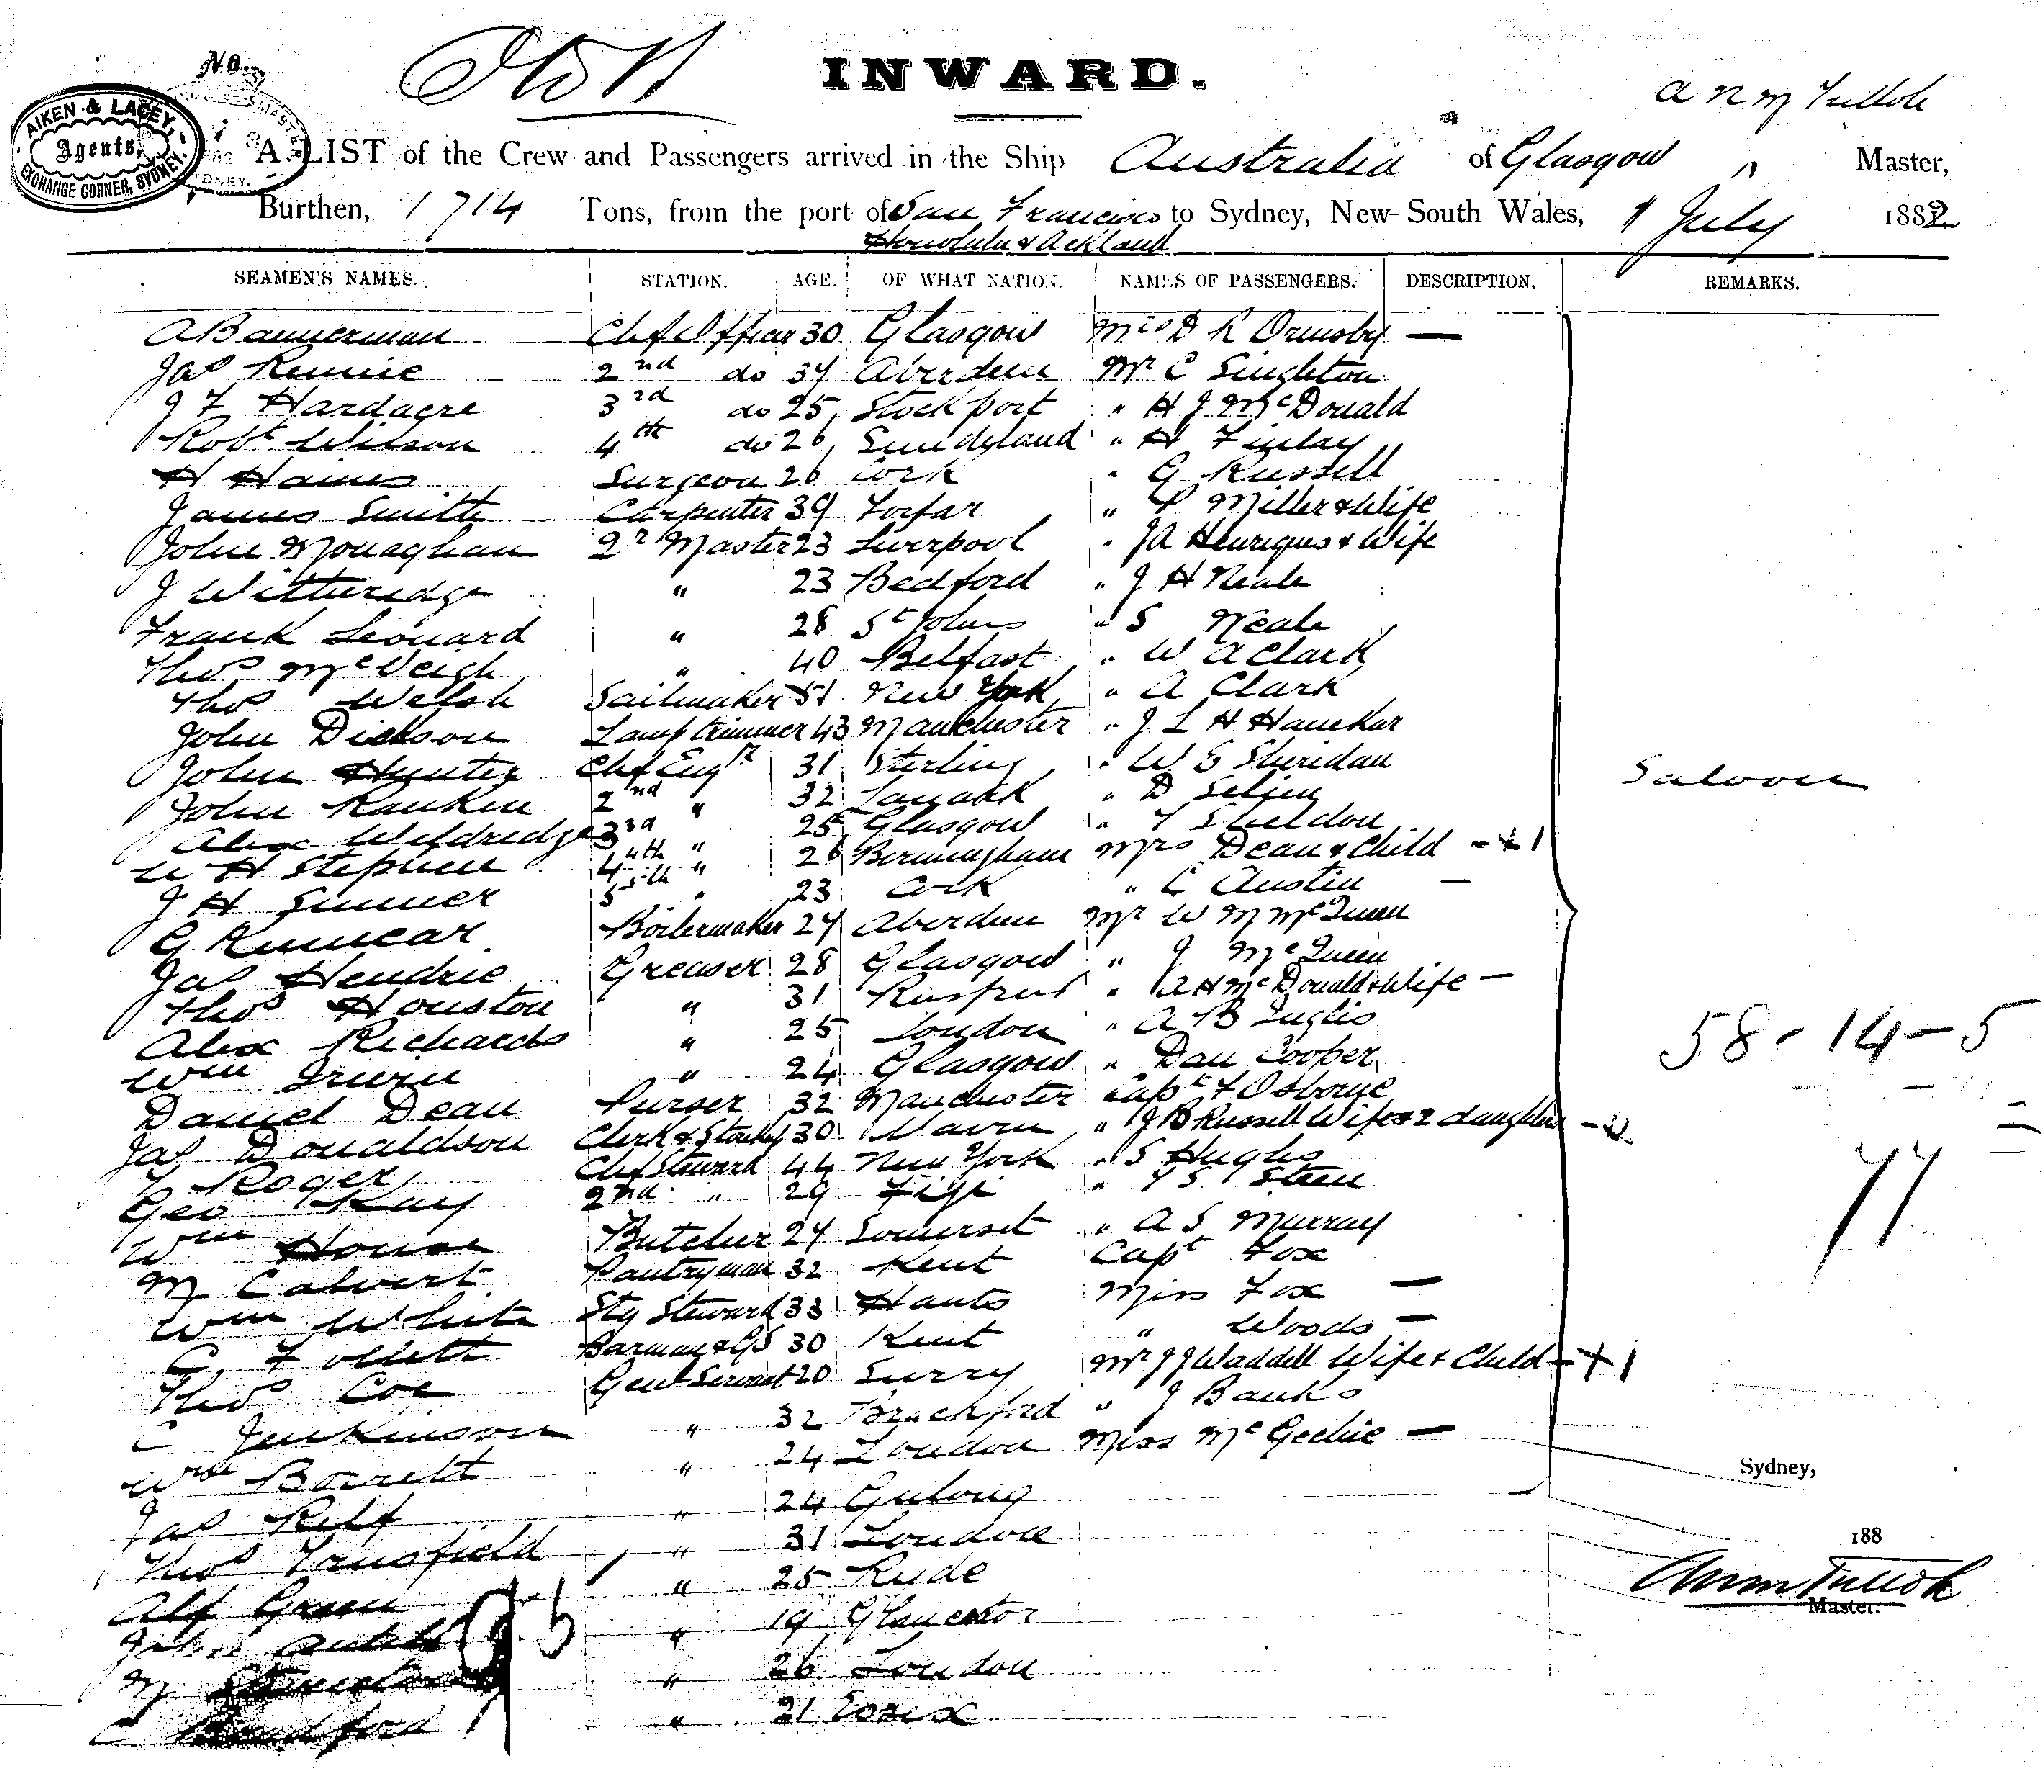 No.
INWARD.
A LIST of the Crew and Passengers arrived in the Ship Australia of Glasgow " Master,
AIKEN & LACEY,
Agents,
EXCHANGE CORNER, SYDNEY.
Burthen, 1714 Tons, from the port of San Francisco to Sydney, New South Wales, 1 July 1882
Honolulu & Ackland
SEAMEN'S NAMES. STATION. AGE. OF WHAT NATION. NAMES OF PASSENGERS. DESCRIPTION. REMARKS.
A Bannerman Chf Officer 30 Glasgow Mrs D R Ormsby —
Jas Rennie 2nd do 34 Aberdeen Mr C Singleton
J F Hardacre 3rd do 25 Stockport " H J McDonald
Robt Wilson 4th do 26 " H Finlay
H Haines Surgeon 26 Cork " G Russell
James Smith Carpenter 39 Forfar " Miller & Wife
John Monaghan Qr Master 23 Liverpool " JA Henriques & Wife
J Witheridge " 23 Bedford " J H Neale
Frank Leonard " 28 St Johns " S Neale
Thos McVeigh " 40 Belfast " W A Clark
Thos Welsh Sailmaker 51 New York " A Clark
John Dickson Lamptrimmer 43 Manchester " J L H
John Hunter Chf Engr 31 Sterling " W G Sheridan
John Rankin 2nd " 32 Lanark " D
Alex Wildridge 3rd " 25 Glasgow " Sheldon
W H Stephen 4th " 26 Birmingham Mrs Dean & Child — + 1
J H Sumner 5th " 23 Cork " C Austin —
G Kinnear Boilermaker 24 Aberdeen Mr W M McQueen
Jas Hendrie Greaser 28 Glasgow " J McQueen
Thos Houston " 31 " A H McDonald & Wife —
Alex Richards " 25 London " A B Inglis
Wm Irwin " 24 Glasgow " Dan Cooper
Daniel Dean Purser 32 Manchester Capt F Osborne
Jas Donaldson Clerk & 30 " J B Russell Wife & 2 daughters
Roger Chf Steward 44 New York " S Hughes
Geo Kay 2nd " 29 Fiji
Wm House Butcher 24 Somerset " A S Murray
M Calvert Pantryman 32 Kent Capt Fox
Wm White Stg Steward 33 Hants Miss Fox —
G Follett Barman & GS 30 Kent " Woods —
Thos Coe Genl Servant 20 Surry Mr J J Waddell Wife & Child — + 1
C Jenkinson " 32 " J Banks
Wm Barrett " 24 London Miss McGechie —
Jas Relf " 24 Gulong
Thos " 31 London
Alf Green " 25 Ryde
John " 19 Glaucestor
M " 26 London
C Bradford " 21 Essex
Saloon
58 - 14 - 5
77
Sydney,
188
Master.